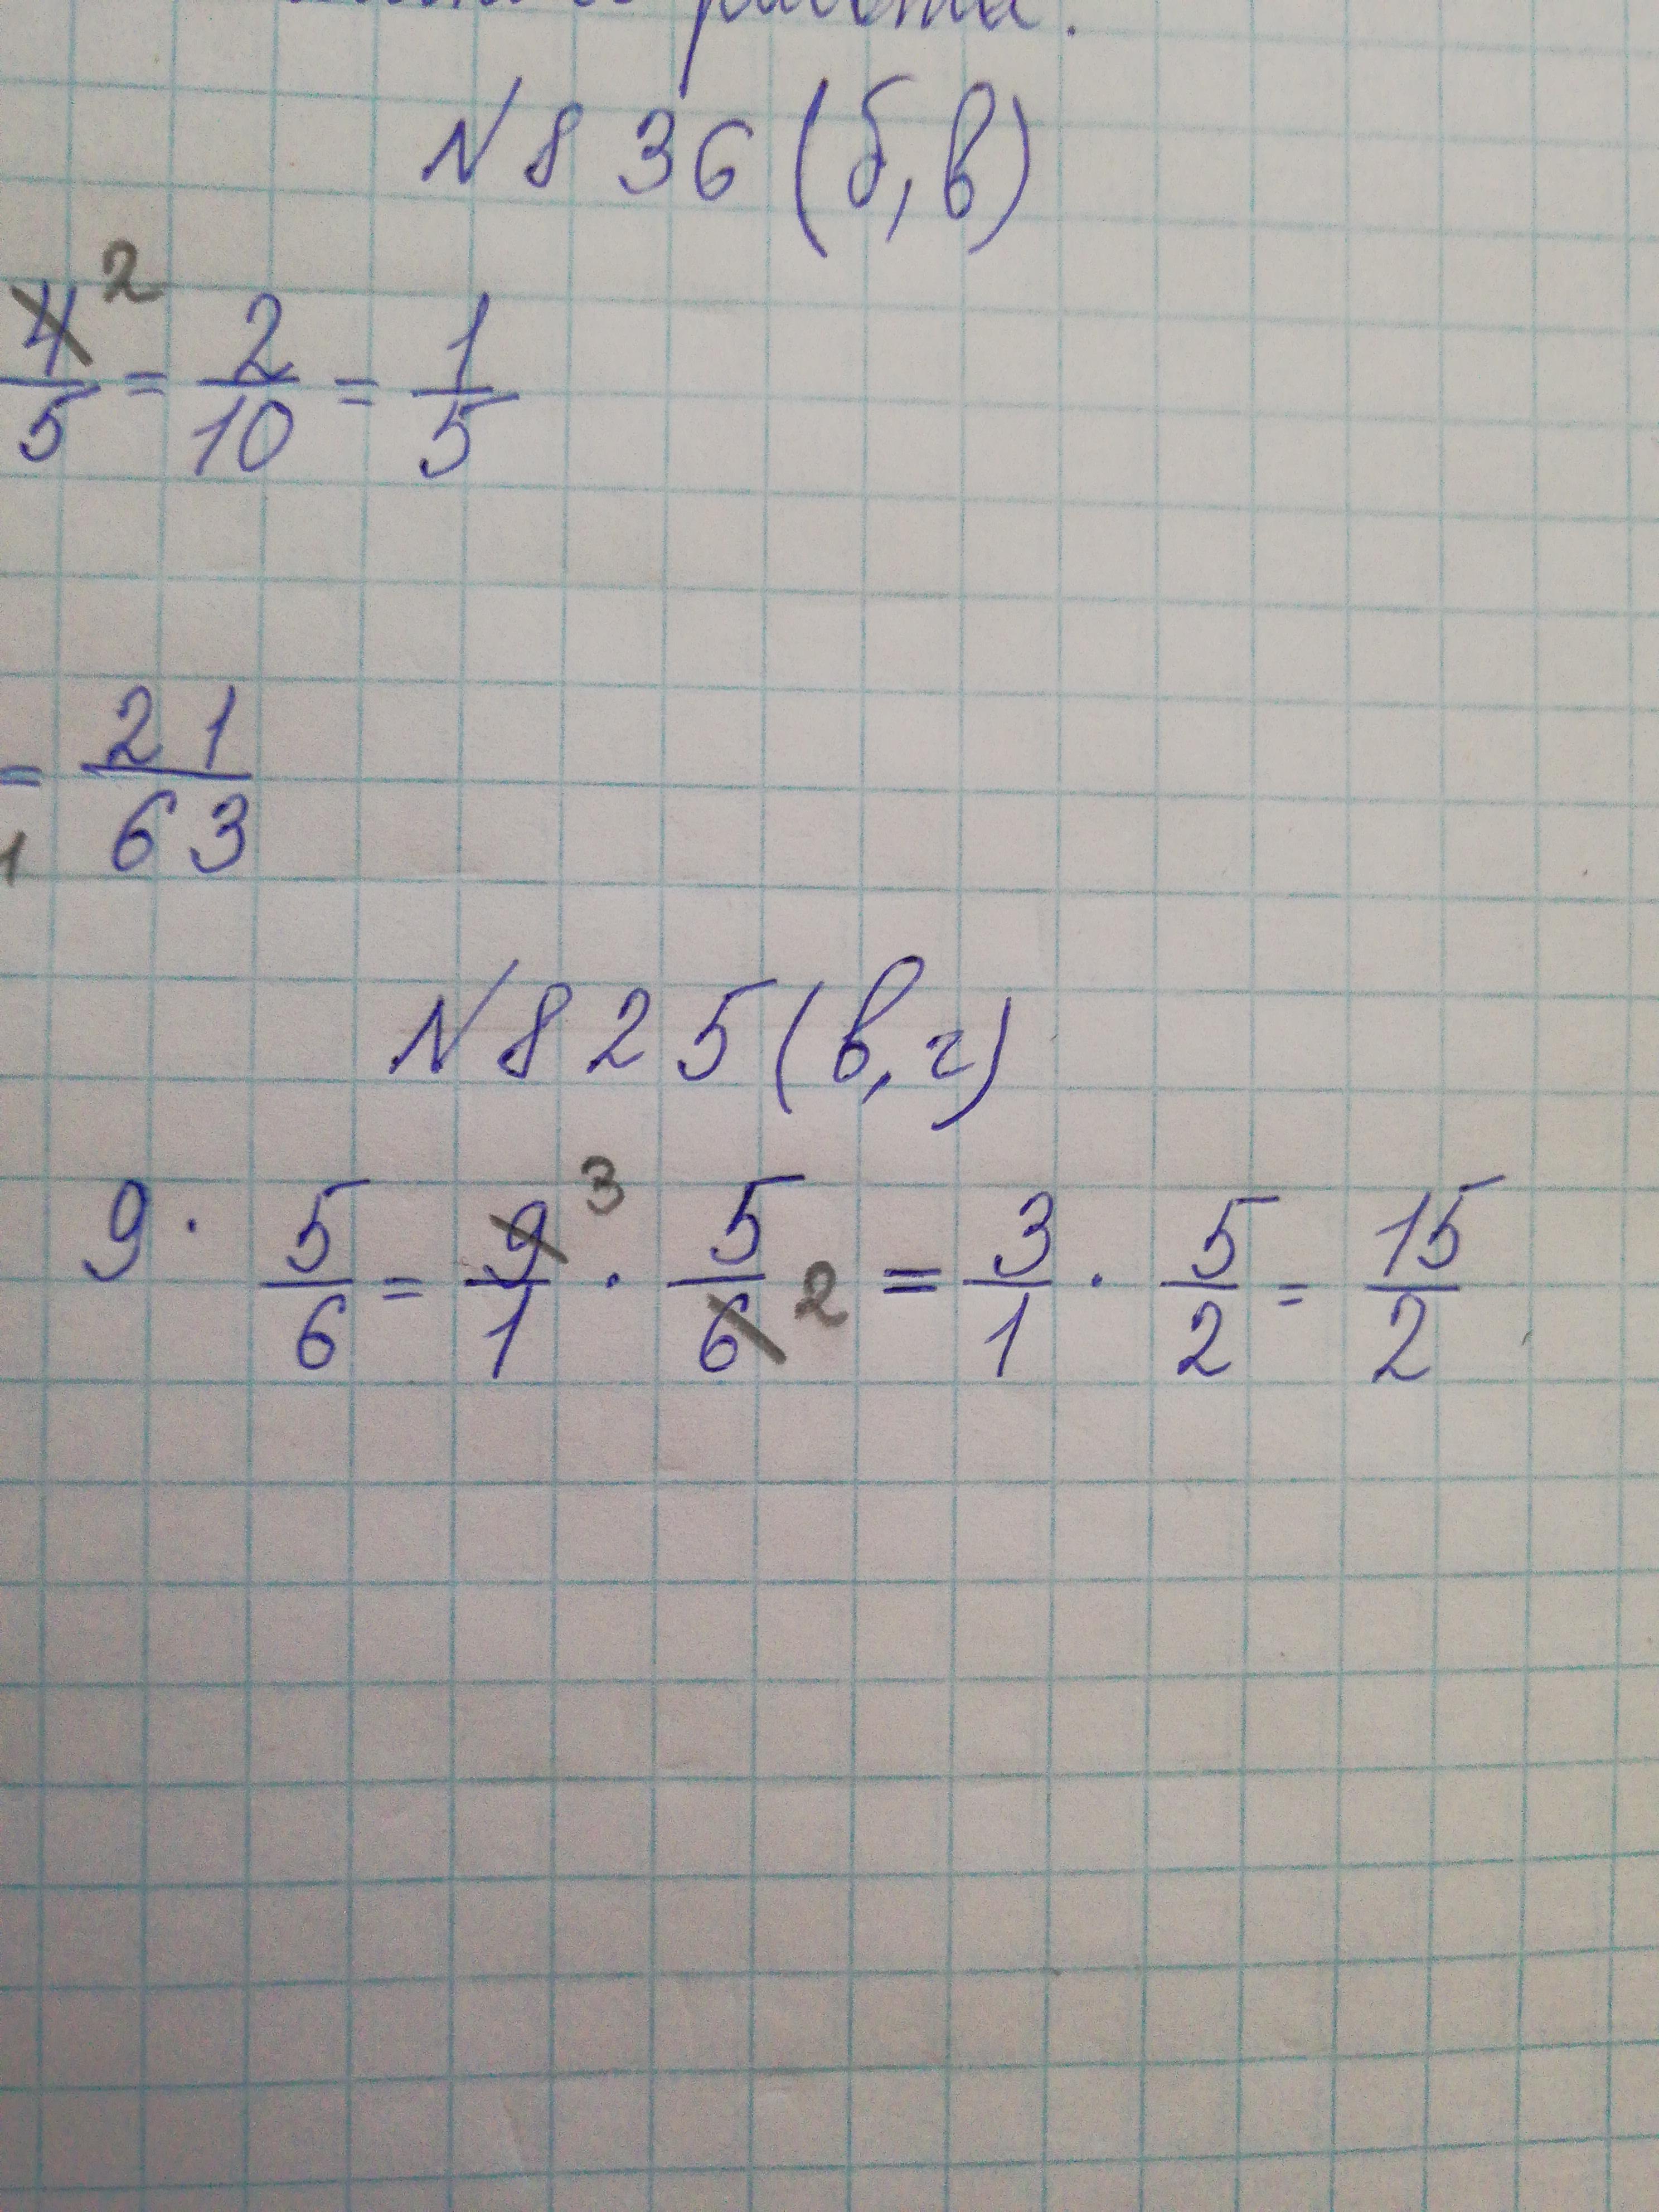 № 836 (б, в)
4/5 2 = 2/10 = 1/5
= 21/63
1
№ 825 (в, г)
9 · 5/6 = 9/1 3 · 5/6 2 = 3/1 · 5/2 = 15/2